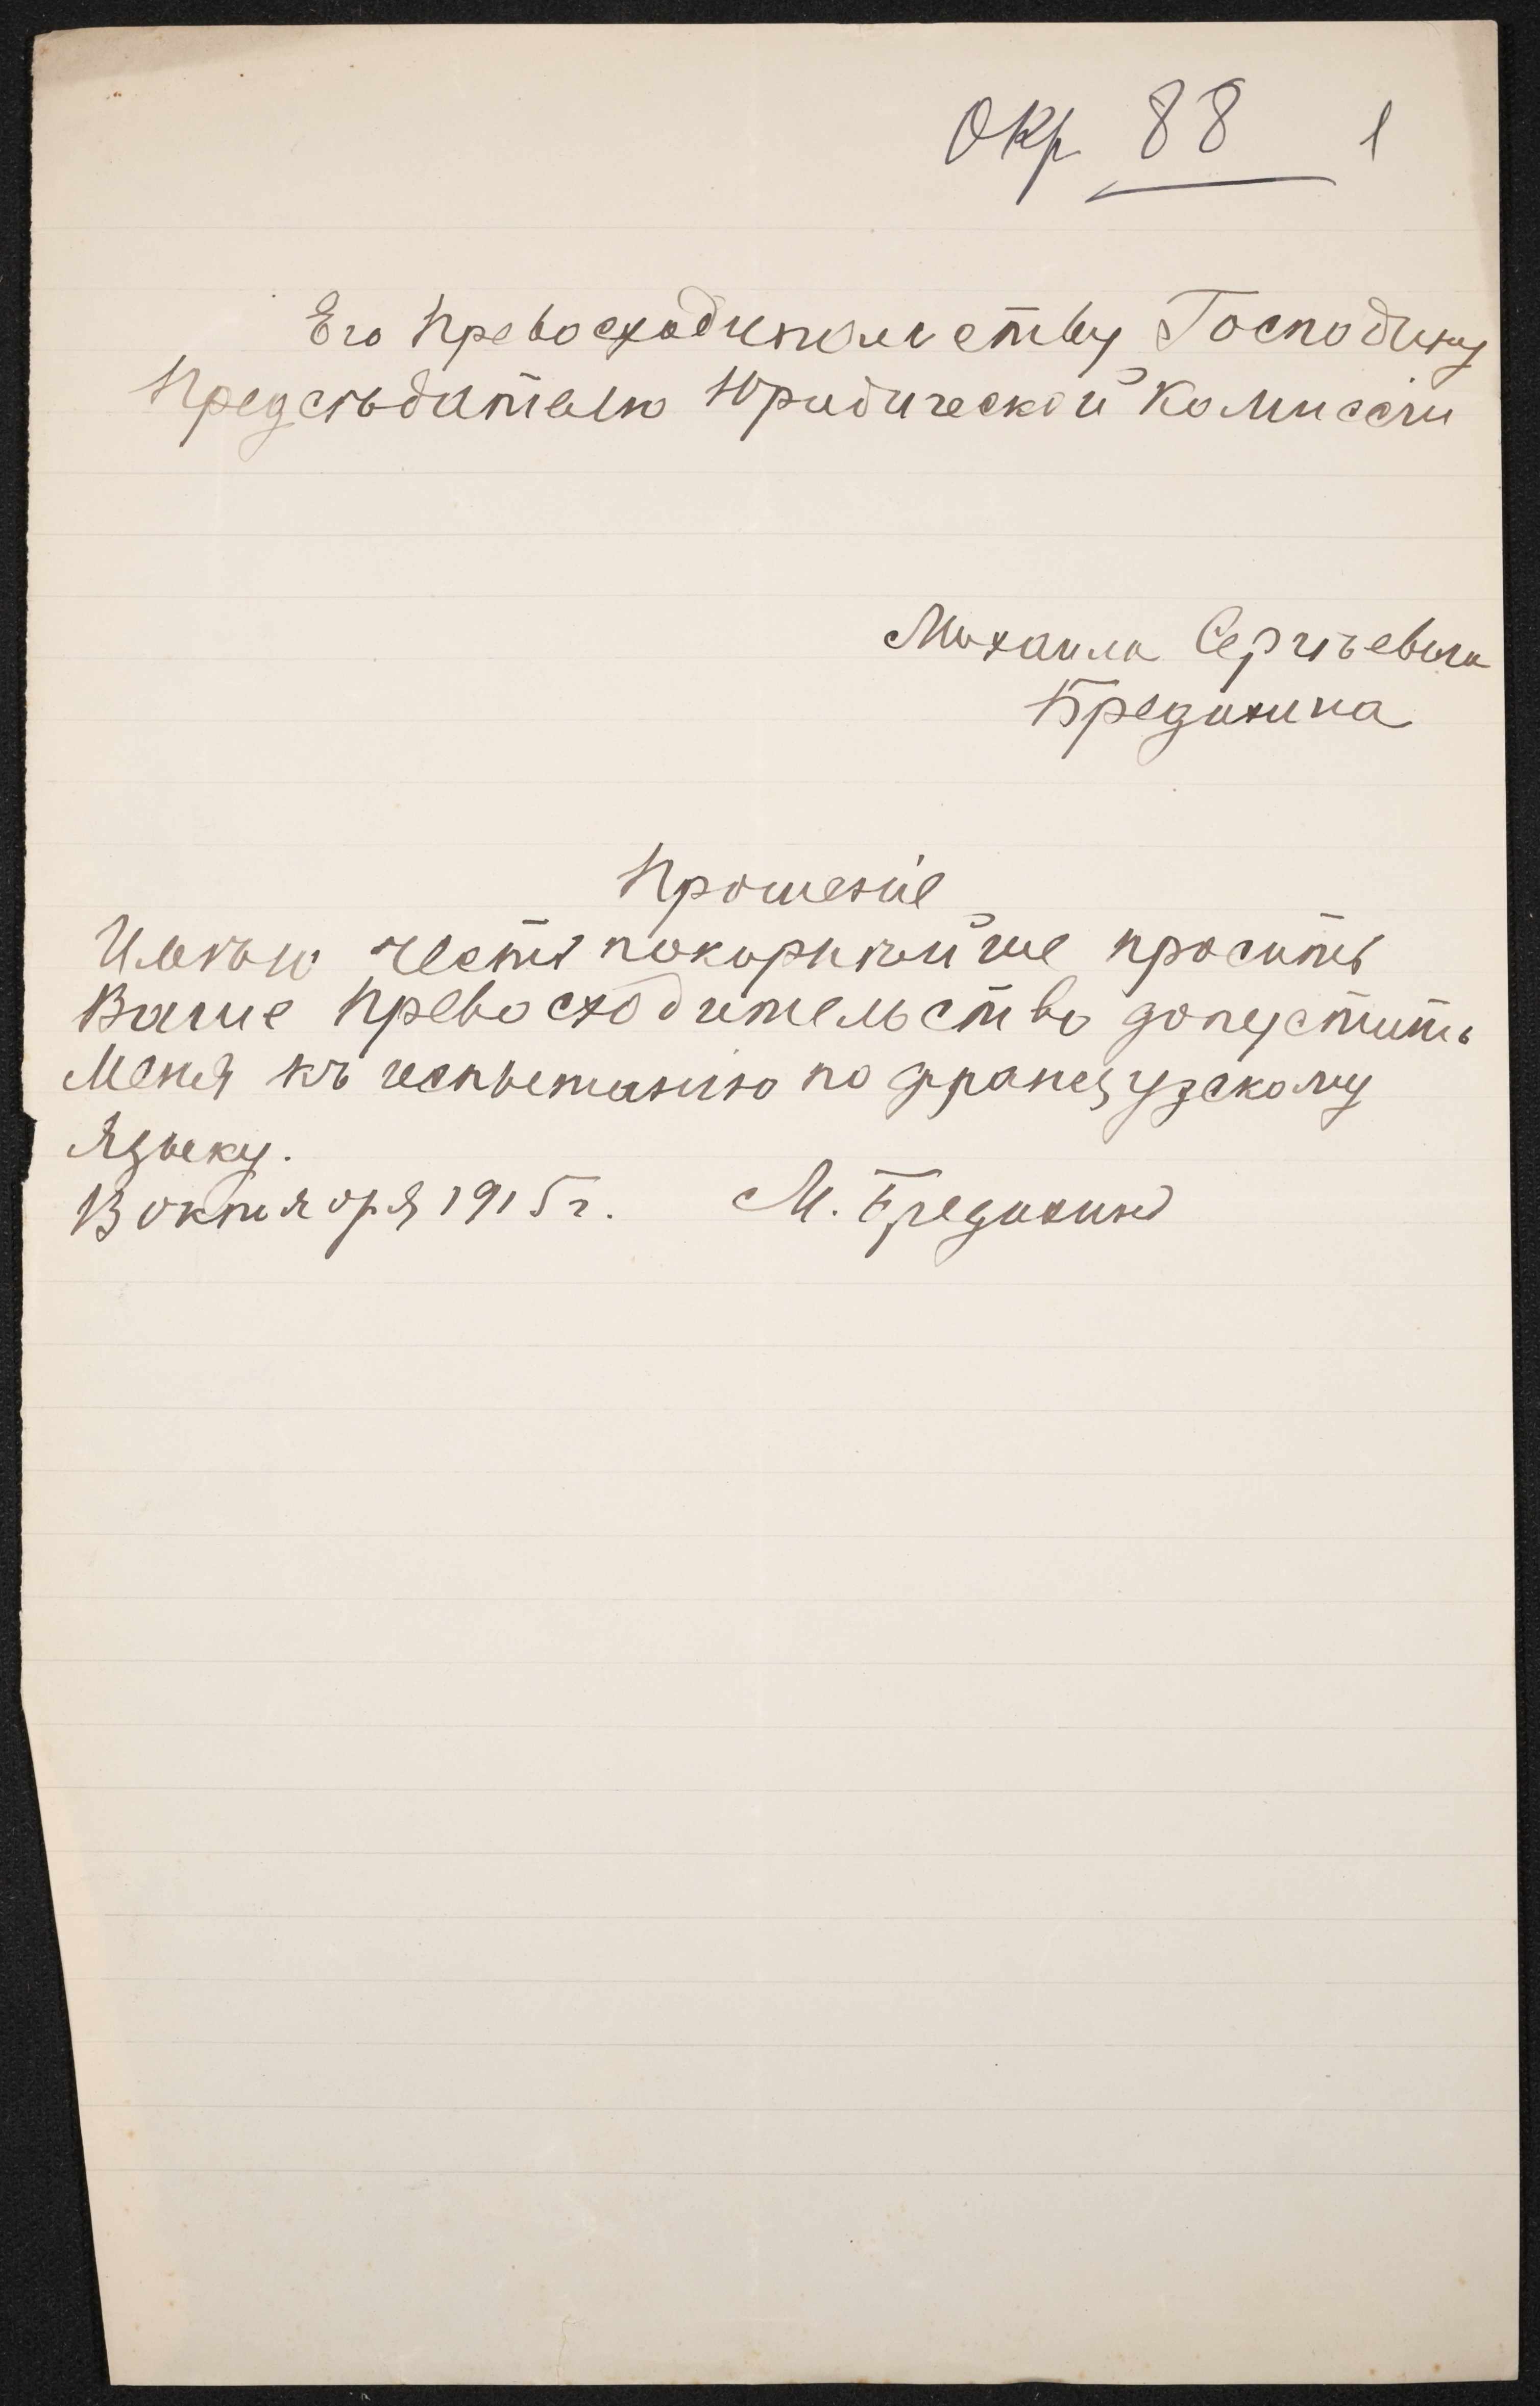 Окр 88 1
Его Превосходительству Господину
Председателю Юридической Комиссіи
Михаила Сергѣевича
Бредихина
Прошеніе
Имѣю честь покорнѣйше просить
Ваше Превосходительство допустить
меня къ испытанію по французскому
языку.
13 октября 1915 г. М. Бредихинъ